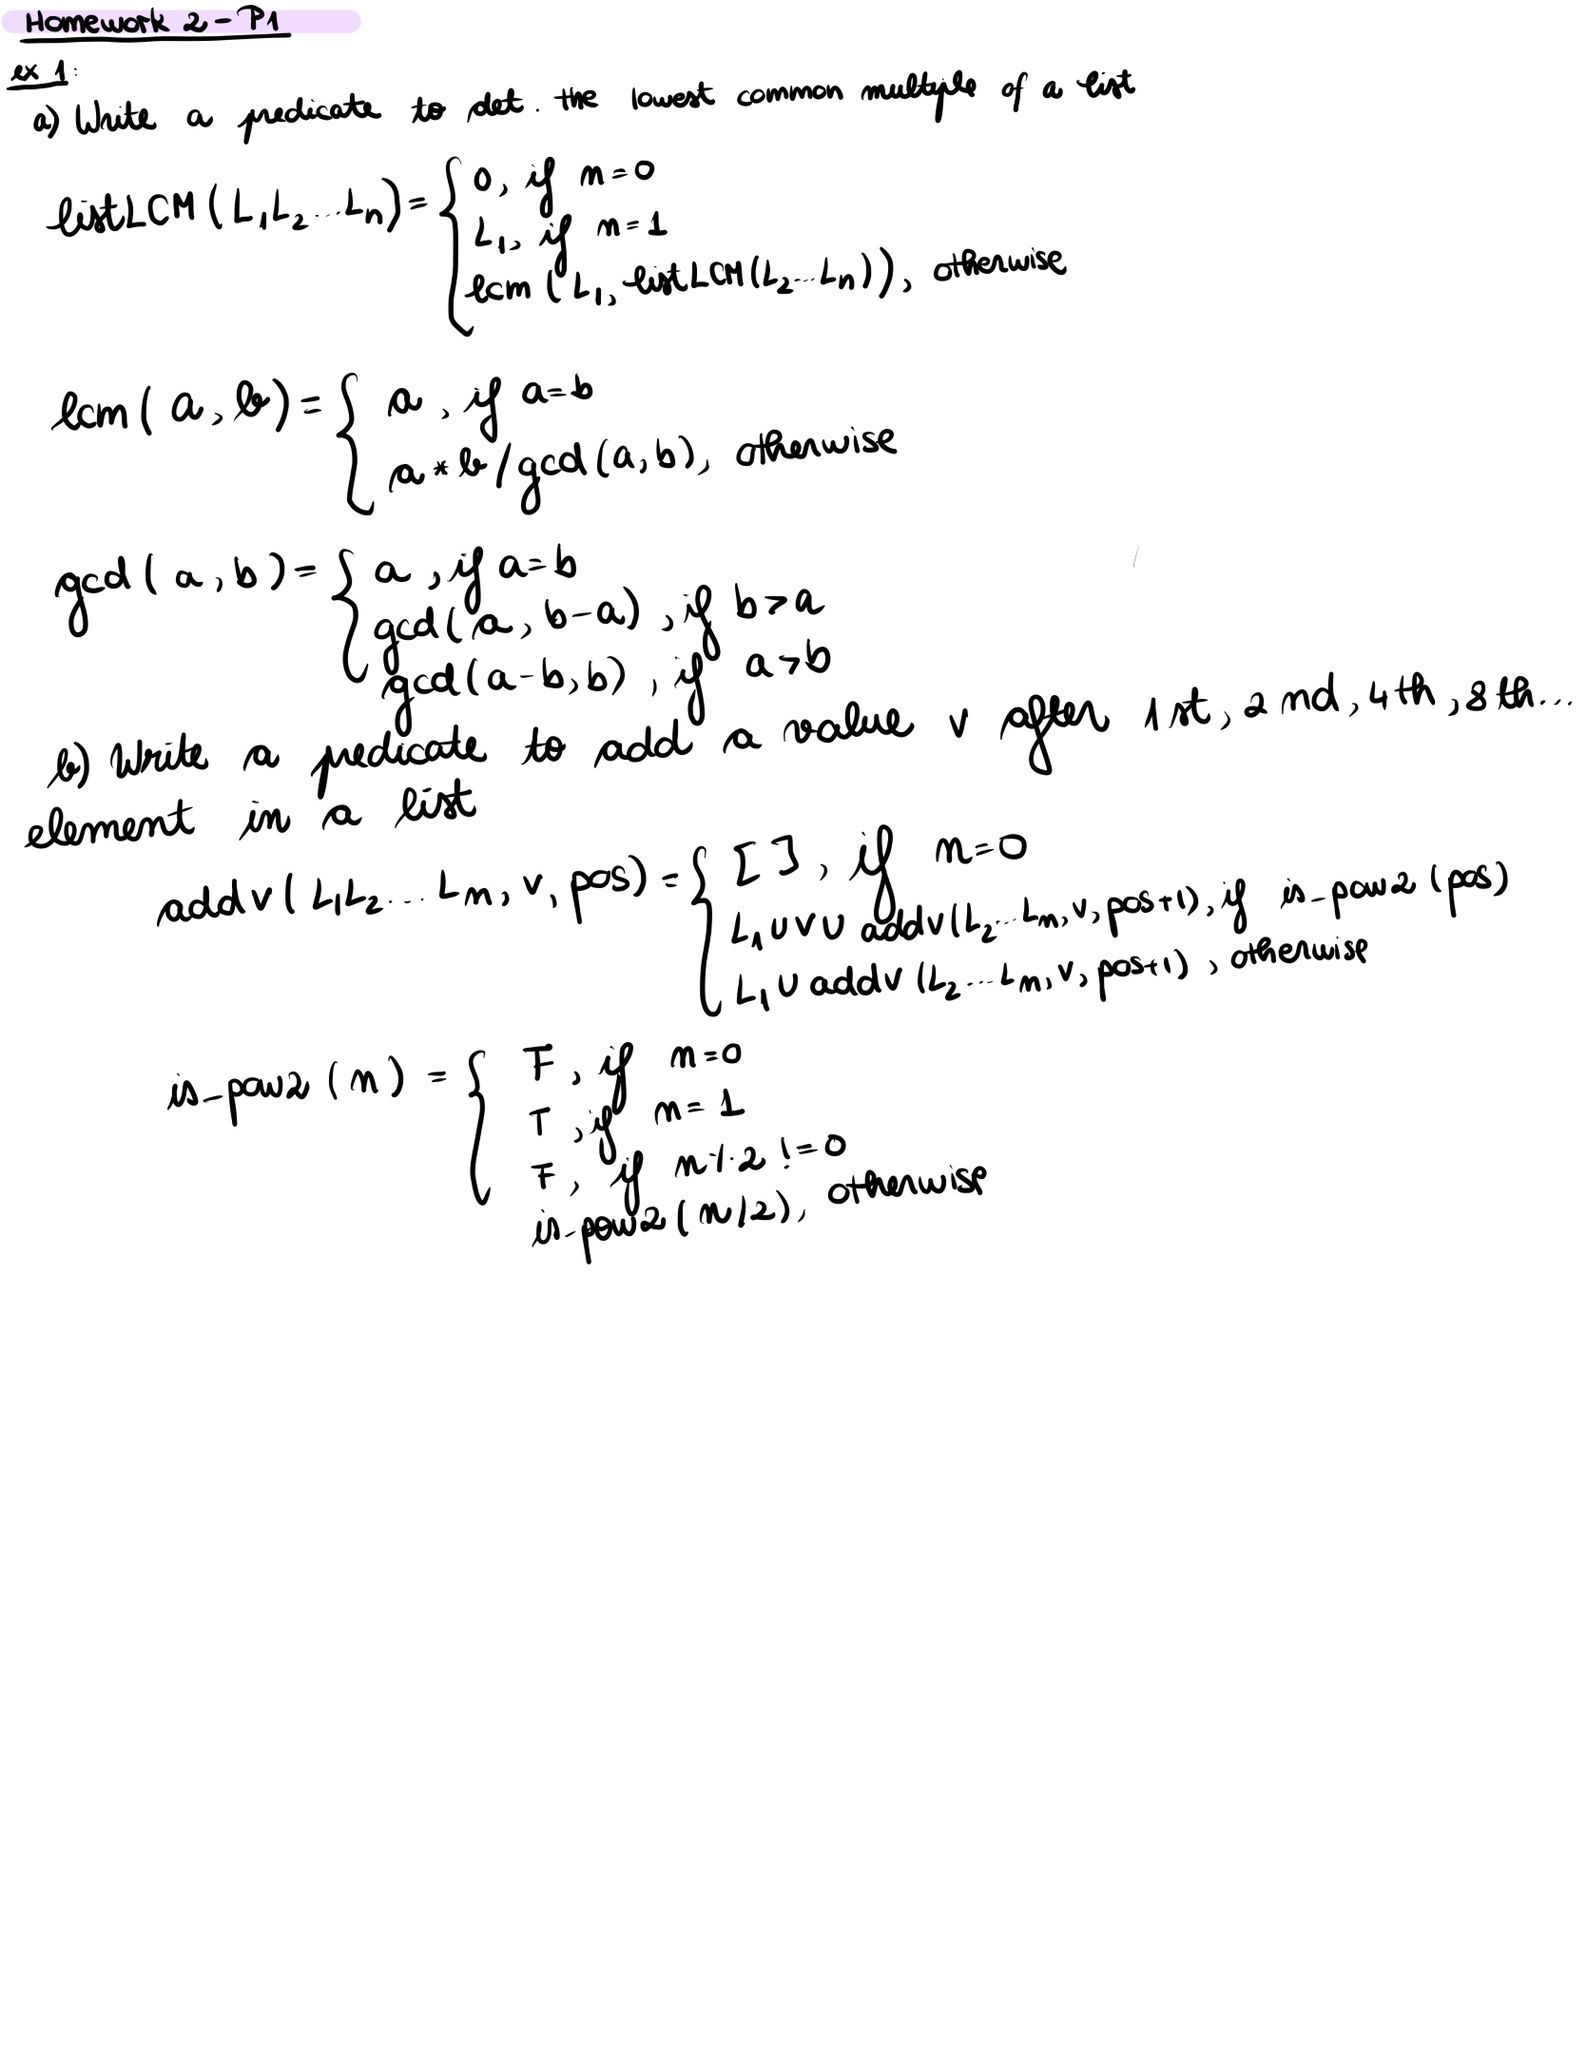 Homework 2 - P1
ex 1:
a) Write a predicate to det. the lowest common multiple of a list
listLCM(L₁L₂...Lₙ) = { 0, if n=0
L₁, if n=1
lcm(L₁, listLCM(L₂...Lₙ)), otherwise
lcm(a, b) = { a, if a=b
a*b/gcd(a,b), otherwise
gcd(a, b) = { a, if a=b
gcd(a, b-a), if b>a
gcd(a-b, b), if a>b
b) Write a predicate to add a value v after 1st, 2nd, 4th, 8th...
element in a list
addv(L₁L₂...Lₙ, v, pos) = { [ ], if n=0
L₁ ∪ v ∪ addv(L₂...Lₙ, v, pos+1), if is_pow2(pos)
L₁ ∪ addv(L₂...Lₙ, v, pos+1), otherwise
is_pow2(n) = { F, if n=0
T, if n=1
F, if n%2 != 0
is_pow2(n/2), otherwise